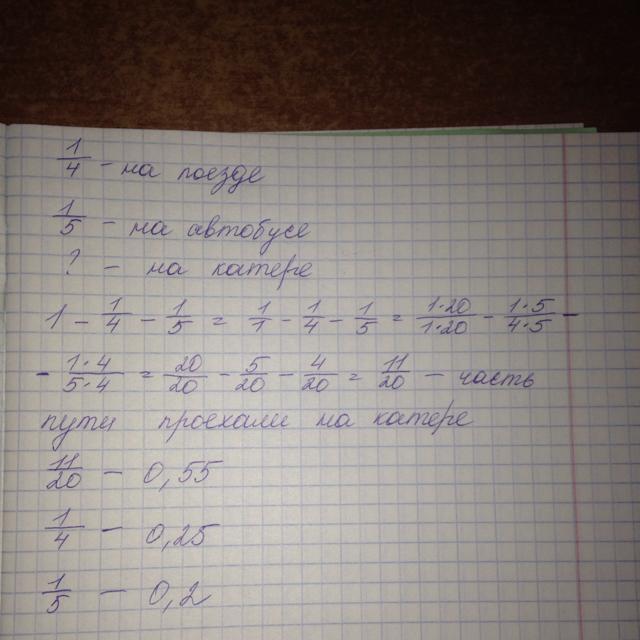 1/4 - на поезде
1/5 - на автобусе
? - на катере
1 - 1/4 - 1/5 = 1/1 - 1/4 - 1/5 = 1·20/1·20 - 1·5/4·5 -
- 1·4/5·4 = 20/20 - 5/20 - 4/20 = 11/20 - часть
пути проехали на катере
11/20 - 0,55
1/4 - 0,25
1/5 - 0,2